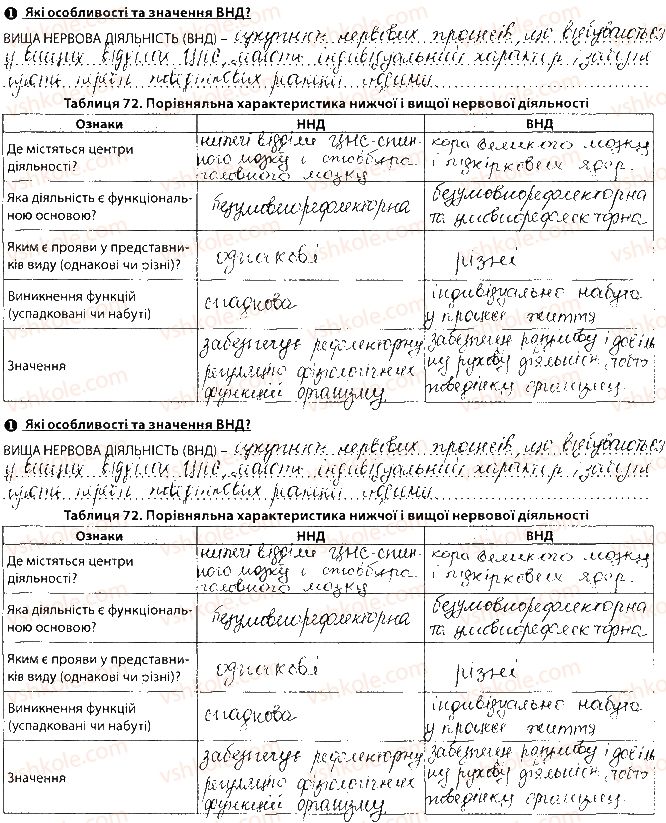 1 Які особливості та значення ВНД?
ВИЩА НЕРВОВА ДІЯЛЬНІСТЬ (ВНД) – сукупність нервових процесів, що відбуваються
у вищих відділах ЦНС, мають індивідуальний характер і
перебіг поведінкових реакцій людини
Таблиця 72. Порівняльна характеристика нижчої і вищої нервової діяльності
Ознаки ННД ВНД
Де містяться центри діяльності?
нижчі відділи ЦНС-спин-
ного мозку і стовбура
головного мозку
кора великого мозку
і підкіркових ядер.
Яка діяльність є функціональ-
ною основою?
безумовнорефлекторна
безумовнорефлекторна
та умовнорефлекторна
Яким є прояви у представни-
ків виду (однакові чи різні)?
однакові
різні
Виникнення функцій
(успадковані чи набуті)
спадкова
індивідуально набута
у процесі життя
Значення
забезпечує рефлекторну
регуляцію фізіологічних
функцій організму
забезпечує розумову і довіль
ну рухову діяльність, тобто
поведінку організму
1 Які особливості та значення ВНД?
ВИЩА НЕРВОВА ДІЯЛЬНІСТЬ (ВНД) – сукупність нервових процесів, що відбуваються
у вищих відділах ЦНС, мають індивідуальний характер і
перебіг поведінкових реакцій людини
Таблиця 72. Порівняльна характеристика нижчої і вищої нервової діяльності
Ознаки ННД ВНД
Де містяться центри
діяльності?
нижчі відділи ЦНС-спин-
ного мозку і стовбура
головного мозку
кора великого мозку
і підкіркових ядер.
Яка діяльність є функціональ-
ною основою?
безумовнорефлекторна
безумовнорефлекторна
та умовнорефлекторна
Яким є прояви у представни-
ків виду (однакові чи різні)?
однакові
різні
Виникнення функцій
(успадковані чи набуті)
спадкова
індивідуально набута
у процесі життя
Значення
забезпечує рефлекторну
регуляцію фізіологічних
функцій організму
забезпечує розумову і довіль
ну рухову діяльність, тобто
поведінку організму
vshkole.com